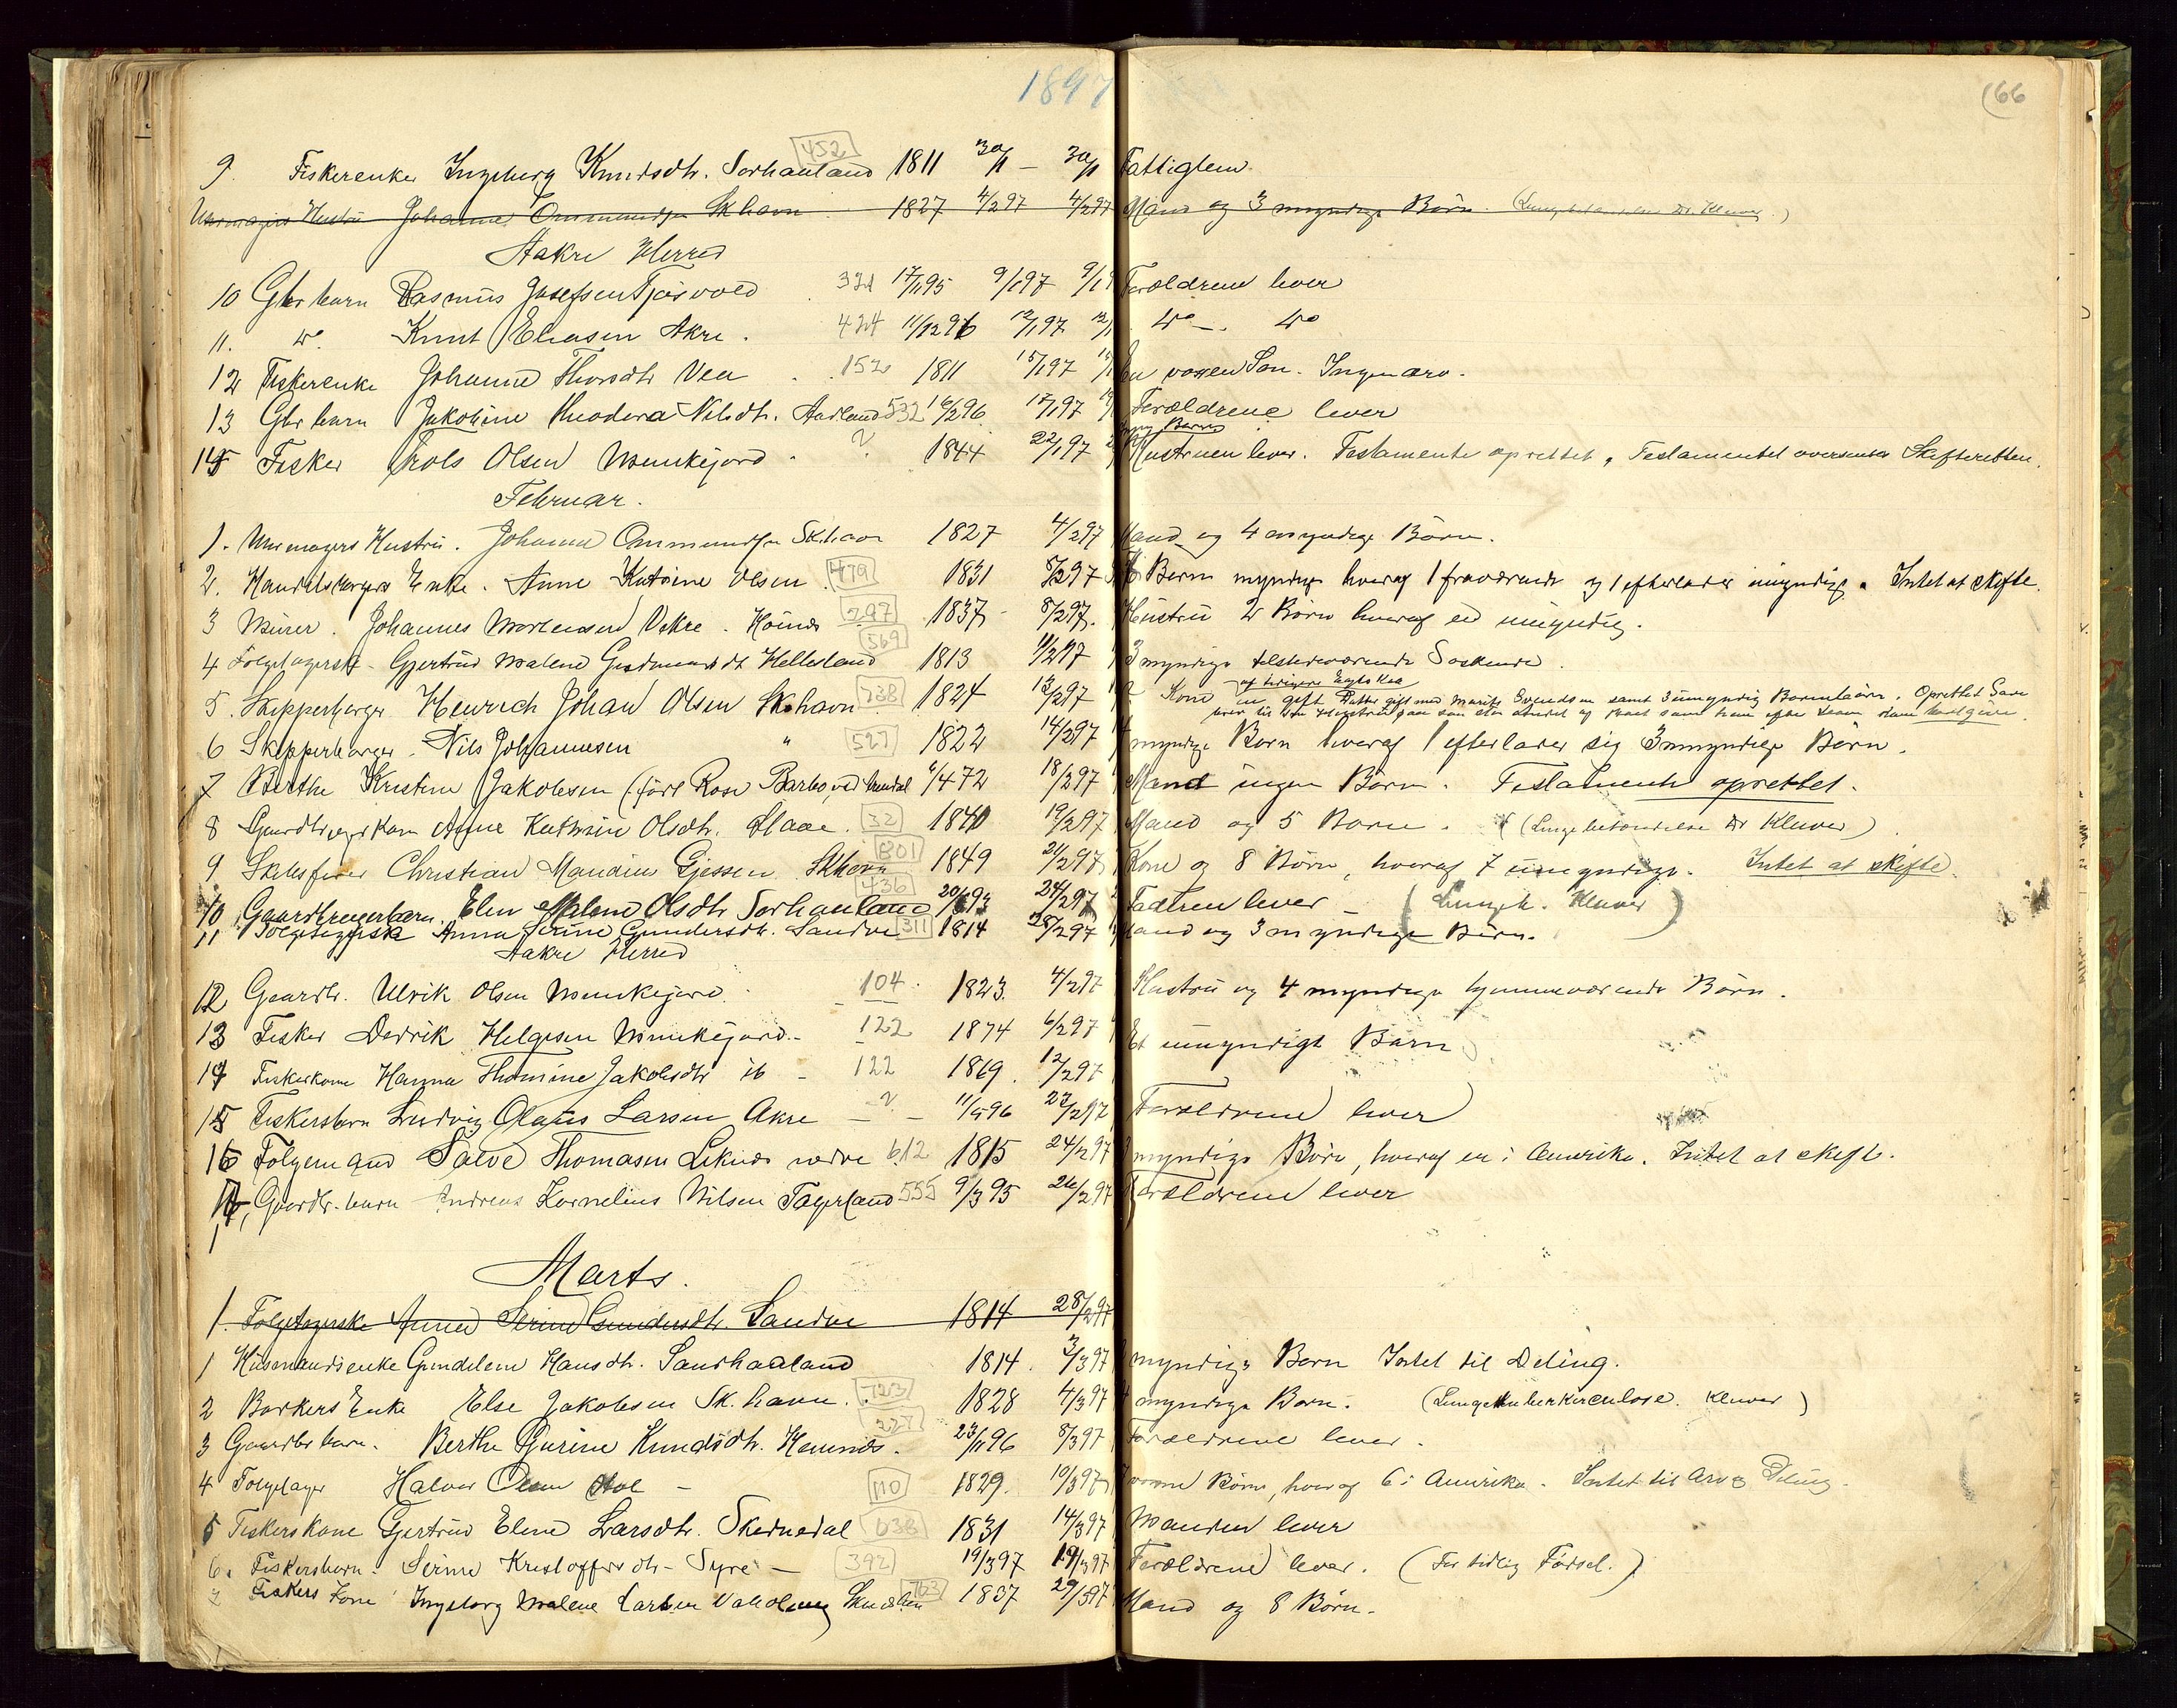 1897
66
9. Fiskerenke Ingeborg Knudsdtr. Sørhauland 452 1811 30/1 – 30/1 Fattiglem.
Urmagers Hustru Johanne Ommundsen Skhavn 1827 4/2 97 4/2 97 Mand og 3 myndige Børn. (Lungebetændelse Dr. Kluwer.)
Aakre Herred
10 Gbr barn Rasmus Josefsen Tjøsvold 321 17/1 95 9/1 97 Forældrene lever
11. do Knut Eliasen Akre. 424 11/12 96 12/1 97 do – do
12 Fiskerenke Johanne Thorsdtr Vea 152 1811 15/1 97 En voxen Søn. Ingen arv.
13 Gbr barn Jakobine Theodora Nilsdtr. 532 16/2 96 17/1 97 Forældrene lever
14 Fisker Trols Olsen Munkejord ? 1844 22/1 97 Hustruen lever. Testamente oprettet, Testamentet oversendes Skifteretten.
Februar.
1. Urmagers Hustru. Johanne Ommundsen Sk.havn 1827 4/2 97 Mand og 4 myndige Børn.
2. Handelsborgers Enke. Anne Katrine Olsen 479 1831 5/2 97 Børn myndige hvoraf 1 fraværende og 1 efterlader umyndige. Intet at skifte.
3 Murer. Johannes Mortensen Vikre. 297 1837 8/2 97. Hustru 2 Børn hvoraf en umyndig.
4 Folgetagerske Gjertrud Malene Gudmundsdtr Hellesland 569 1813 11/2 97 3 myndige tilstedeværende Søskende.
5. Skipperborger Henrich Johan Olsen Sk.havn 738 1824 13/2 97 Kone en gift Datter gift med Marits Evendsen samt 3 umyndig Barnebørn. Oprettet
6 Skipperborger. Nils Johannesen " 527 1822 14/2 97 4 myndige Børn hvoraf 1 efterlader sig 3 umyndige Børn.
7 Berthe Kristine Jakobsen 1/4 72 18/2 97 Mand ingen Børn. Testamente oprettet.
8 Gaardbrugerkone Anne Kathrine Olsdtr. Staae. 32 1840 19/2 97 Mand og 5 Børn. (Lungebetændelse Dr Kluwer)
9 Skibsfører Christian Mandius Gjessen Skhavn 801 1849 21/2 97 Kone og 8 Børn, hvoraf 7 umyndige. Intet at skifte.
10 Gaardbrugerbarn. Elen Malene Olsdtr Sørhauland 436 24/2 97 Fadren lever – (Lungeb. Kluwer)
11 Folgetagerske Anna Serine Gundersdtr. Sandve 311 1814 28/2 97 Mand og 3 myndige Børn.
Aakre Herred
12 Gaardbr. Ulrik Olsen Munkejord. 104 1823. 4/2 97 Hustru og 4 myndige hjemmeværende Børn.
13 Fisker Dedrik Helgesen Munkejord. – 122 1874 6/2 97 Et umyndigt Barn
14 Fiskerkone Hanna Thomine Jakobsdtr ib – 122 1869. 12/2 97
15 Fiskersbarn Ludvig Olaus Larsen Akre – ? – 11/5 96 23/2 97 Forældrene lever
16 Folgemand Salve Thomasen Liknes nedre 612 1815 24/2 97 myndige Børn, hvoraf en i Amerika. Intet at skifte.
17, Gaardbr. barn Andreas Kornelius Nilsen Fagerland 555 9/3 95 26/2 97 Forældrene lever
Marts.
1. Folgetagerske Anna Serine Gundersdtr. Sandve 1814 28/2 97
1 Husmandsenke Gundelene Hansdtr. Sandhaaland 1814. 3/3 97 myndige Børn Intet til Deling.
2 Bøkkers Enke Else Jakobsen Sk.havn. 723 1828 4/3 97 4 myndige Børn. (Lungetuberkerculose. Kluwer)
3 Gaardbr barn. Berthe Gurine Knudsdtr. Hemnes. 227 23/11 96 8/3 97 Forældrene lever.
4 Folgetager Halvor Olsen Hol – 110 1829. 10/3 97 voxne Børn, hvoraf 6 i Amerika. Intet til Arv og Deling.
5 Fiskerskone Gjertrud Elene Larsdtr. Skednedal 638 1831 14/3 97 Manden lever
6. Fiskersbarn. Serine Kristoffersdtr – Syre – 392 19/3 97 19/3 97 Forældrene lever. (For tidlig Fødsel.)
7 Fiskers Kone Ingeborg Malene Larsen 763 1837 29/3 97 Mand og 8 Børn.